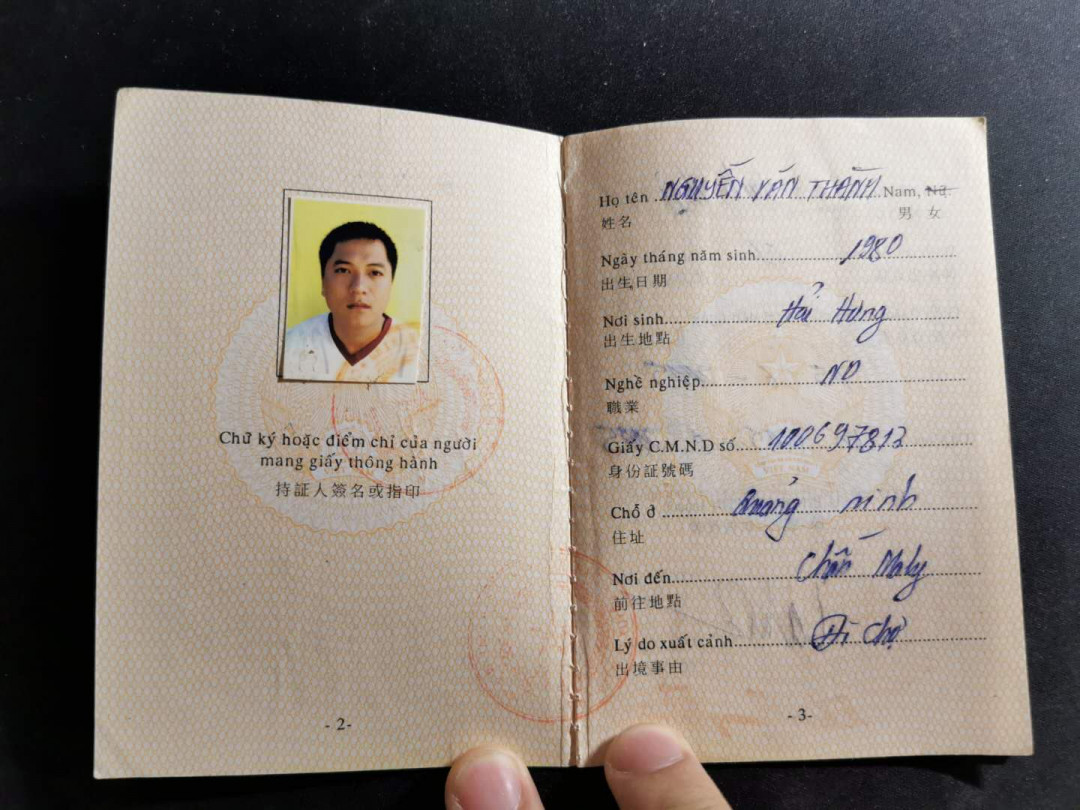 Chữ ký hoặc điểm chỉ của người
mang giấy thông hành
持証人簽名或指印
- 2-
Họ tên NGUYỄN VĂN THÀNH Nam, Nữ.
姓名 男 女
Ngày tháng năm sinh 1980
出生日期
Nơi sinh Hải Hưng
出生地點
Nghề nghiệp ND
職業
Giấy C.M.N.D số 100697812
身份証號碼
VIỆT NAM
Chỗ ở Quảng ninh
住址
Nơi đến
前往地點
Lý do xuất cảnh Đi chợ
出境事由
- 3-